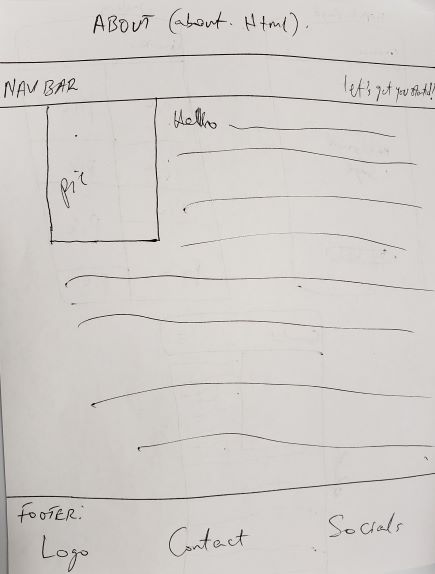 ABOUT (about. Html).
NAV BAR let's get you started!
pic
Hello
FOOTER:
Logo Contact Socials